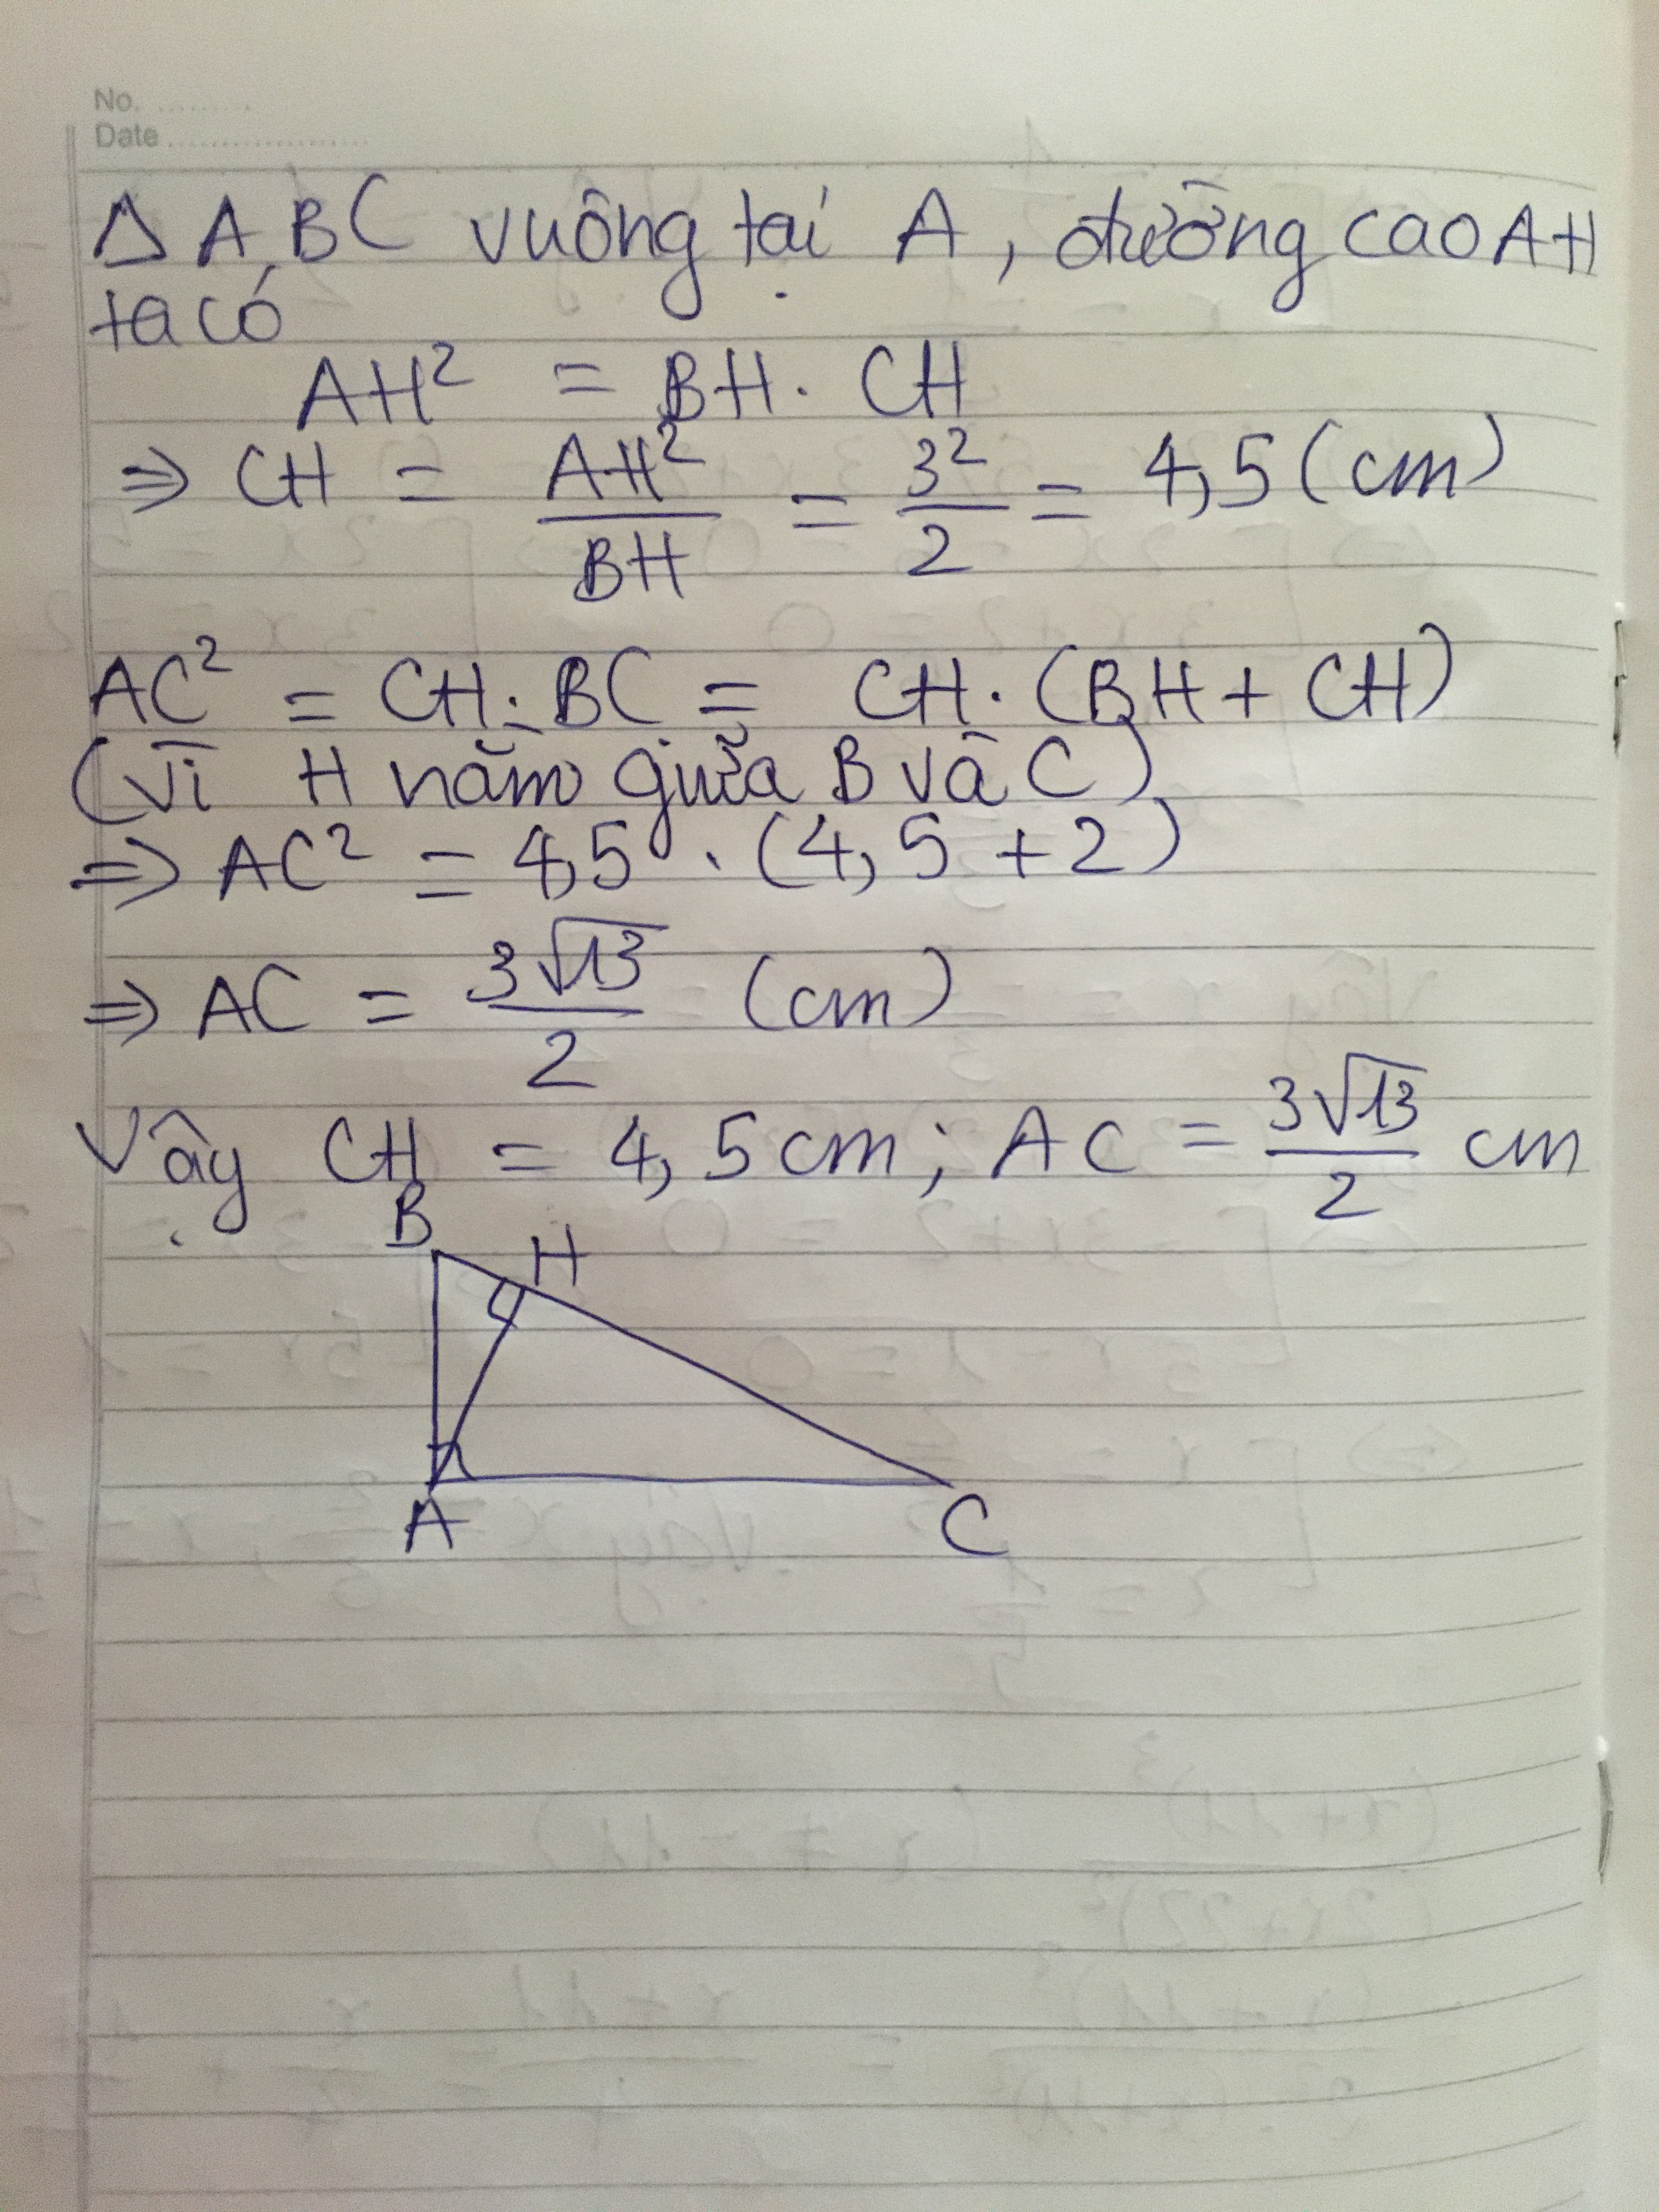 No. ........
Date ....................
Δ ABC vuông tại A, đường cao AH
ta có
AH² = BH . CH
⇒ CH = AH²/BH = 3²/2 = 4,5 (cm)
AC² = CH . BC = CH . (BH + CH)
(Vì H nằm giữa B và C)
⇒ AC² = 4,5 . (4,5 + 2)
⇒ AC = 3√13/2 (cm)
Vậy CH = 4,5cm ; AC = 3√13/2 cm
B
H
A
C